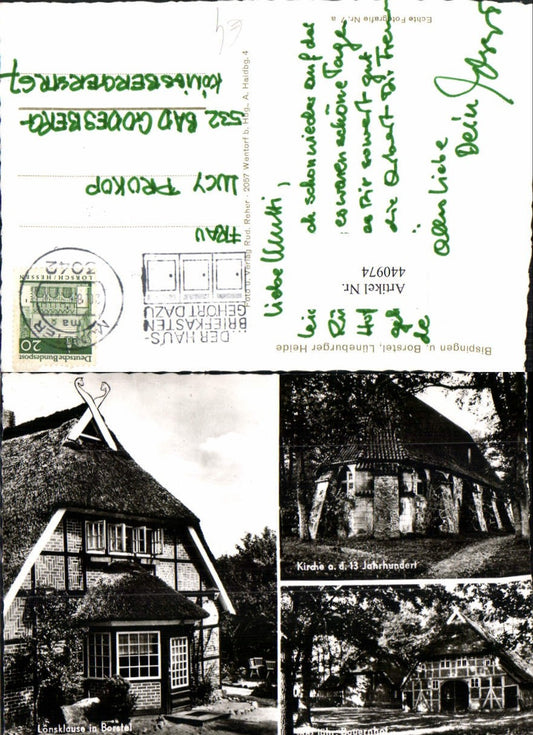 Echte Fotografie Nr. 7 a
Bispingen u. Borstel, Lüneburger Heide
Foto u. Verlag Rud. Reher - 2057 Wentorf b. Hbg., A. Haidbg. 4
Artikel Nr.
440974
Liebe Mutti,
schon wieder auf der
es waren schöne Tage
Dir soweit gut
die Arbeit Dir Freu
de
Alles Liebe
Dein
FRAU
LUCY PROKOP
532 BAD GODESBERG
KÖNIGSBERGERSTR. 67
...DER HAUS-
BRIEFKASTEN
GEHÖRT DAZU
3042
LORSCH/HESSEN
Deutsche Bundespost
20
Lönsklause in Borstel
Kirche a. d. 13 Jahrhundert
Bauernhof